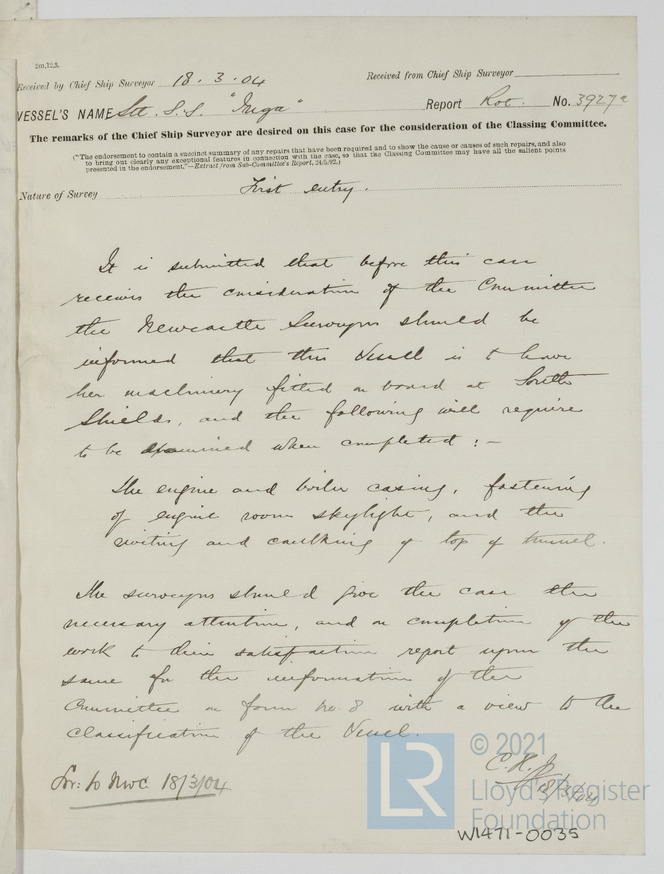 2m,12,3.
Received by Chief Ship Surveyor 18.3.04 Received from Chief Ship Surveyor
VESSEL'S NAME Stl. S.S. "Inga" Report Rot. No. 3927
The remarks of the Chief Ship Surveyor are desired on this case for the consideration of the Classing Committee.
("The endorsement to contain a succinct summary of any repairs that have been required and to show the cause or causes of such repairs, and also
to bring out clearly any exceptional features in connection with the case, so that the Classing Committee may have all the salient points
presented in the endorsement."—Extract from Sub-Committee's Report, 24/5/92.)
Nature of Survey First entry.
It is submitted that before this case
receives the consideration of the Committee
the Newcastle Surveyors should be
informed that this Vessel is to have
her machinery fitted on board at South
Shields, and the following will require
to be examined when completed :-
The engine and boiler casing, fastening
of engine room skylight, and the
riveting and caulking of top of tunnel.
The surveyors should give the case the
necessary attention, and on completion of the
work to their satisfaction report upon the
same for the information of the
Committee on form No. 8 with a view to the
classification of the Vessel.
to NWC 18/3/04
18/3/04
© 2021
LR
Lloyd's Register
Foundation
W1471-0035